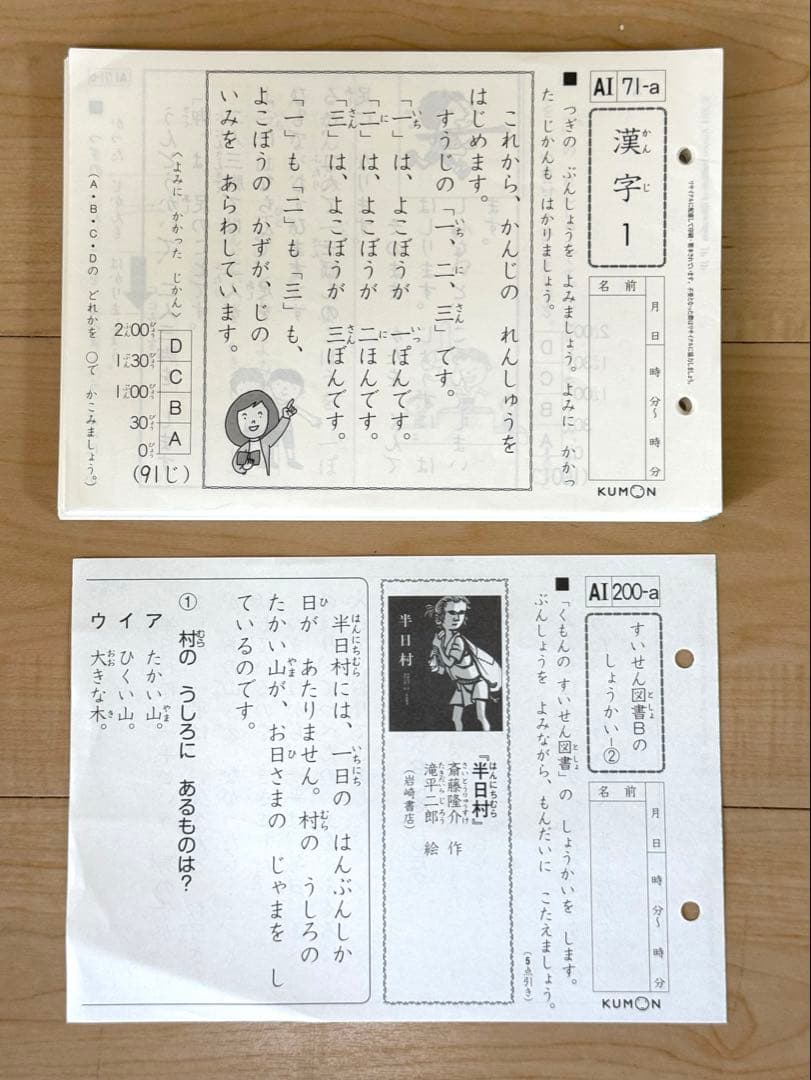 AI 71-a
漢字1
かん じ
名前
月 日
時 分〜 時 分
KUMON
■ つぎの ぶんしょうを よみましょう。よみに かかっ
た じかんも はかりましょう。
これから、かんじの れんしゅうを
はじめます。
すうじの「一、二、三」です。
「一」は、よこぼうが 一ぽんです。
「二」は、よこぼうが 二ほんです。
「三」は、よこぼうが 三ぼんです。
「一」も「二」も「三」も、
よこぼうの かずが、じの
いみを あらわしています。
〈よみに かかった じかん〉
D C B A
2:00 1:30 1:00 30 0
(91じ)
(A・B・C・Dの どれかを ○で かこみましょう。)
AI 200-a
すいせん図書Bの
しょうかい―②
名前
月 日
時 分〜 時 分
KUMON
■ 「くもんの すいせん図書」の しょうかいを します。
ぶんしょうを よみながら、もんだいに こたえましょう。
(5点引き)
半日村
『半日村』
はんにちむら
斎藤隆介 作
さいとうりゅうすけ
滝平二郎 絵
たきだいらじろう
(岩崎書店)
半日村には、一日の はんぶんしか
日が あたりません。村の うしろの
たかい山が、お日さまの じゃまを し
ているのです。
① 村の うしろに あるものは?
ア たかい山。
イ ひくい山。
ウ 大きな木。